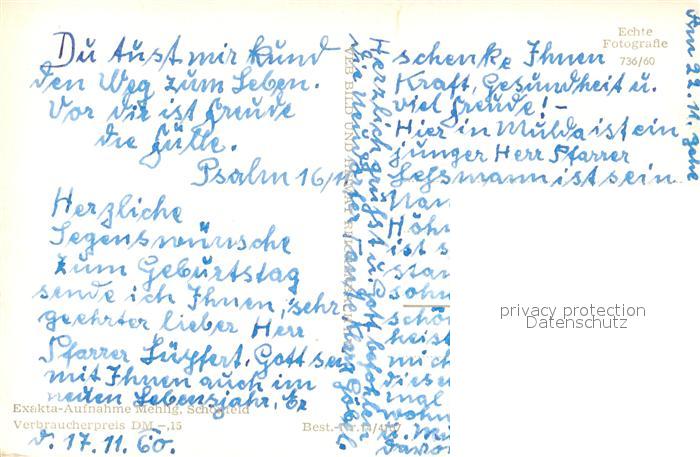 Du tust mir kund
den Weg zum Leben.
Vor dir ist Freude
die Fülle.
Psalm 16/11
Herzliche
Segenswünsche
zum Geburtstag
sende ich Ihnen, sehr
geehrter lieber Herr
Pfarrer Gott sei
mit Ihnen auch im
neuen Lebensjahr. Er
Exakta-Aufnahme Mehlig, Schönfeld
Verbraucherpreis DM -,15
Best.-Nr. 14/4107
d. 17.11.60.
Echte
Fotografie
736/60
schenke Ihnen
Kraft, Gesundheit u.
viel Freude! -
Hier in Mulda ist ein
junger Herr Pfarrer
Lehmann ist sein
Nam
Höhn
ist s
stan
sohn
schön
heist
mich
diese
mal
wohn
u. Mi
davo
Herzlich grüßt u. Gott befohlen
VEB BILD UND
Am 22. 11.
privacy protection
Datenschutz